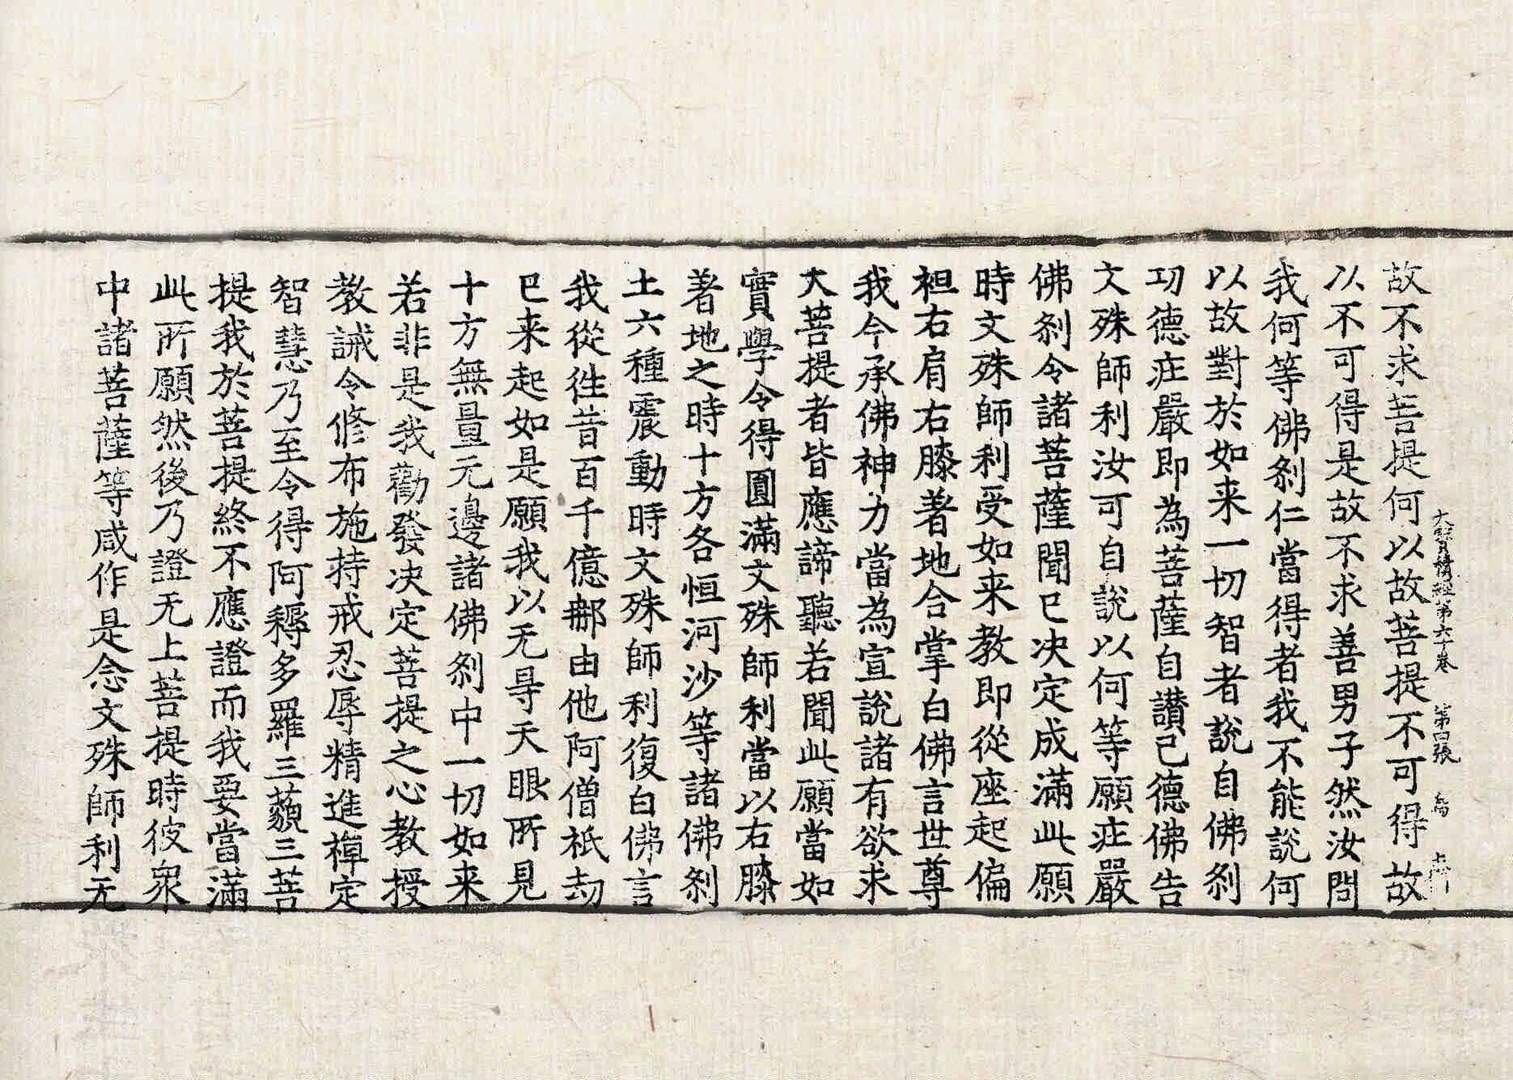 大寶積經第六十卷 第四張
故不求菩提何以故菩提不可得故
以不可得是故不求善男子然汝問
我何等佛刹仁當得者我不能說何
以故對於如来一切智者說自佛刹
功德疘嚴即為菩薩自讃己德佛告
文殊師利汝可自說以何等願疘嚴
佛刹令諸菩薩聞已决定成滿此願
時文殊師利受如来教即從座起偏
袒右肩右膝著地合掌白佛言世尊
我今承佛神力當為宣說諸有欲求
大菩提者皆應諦聽若聞此願當如
實學令得圓滿文殊師利當以右膝
著地之時十方各恒河沙等諸佛刹
土六種震動時文殊師利復白佛言
我從往昔百千億那由他阿僧祇劫
已来起如是願我以无㝵天眼所見
十方無量无邊諸佛刹中一切如来
若非是我勸發决定菩提之心教授
教誡令修布施持戒忍辱精進禪定
智慧乃至令得阿耨多羅三藐三菩
提我於菩提終不應證而我要當滿
此所願然後乃證无上菩提時彼衆
中諸菩薩等咸作是念文殊師利无